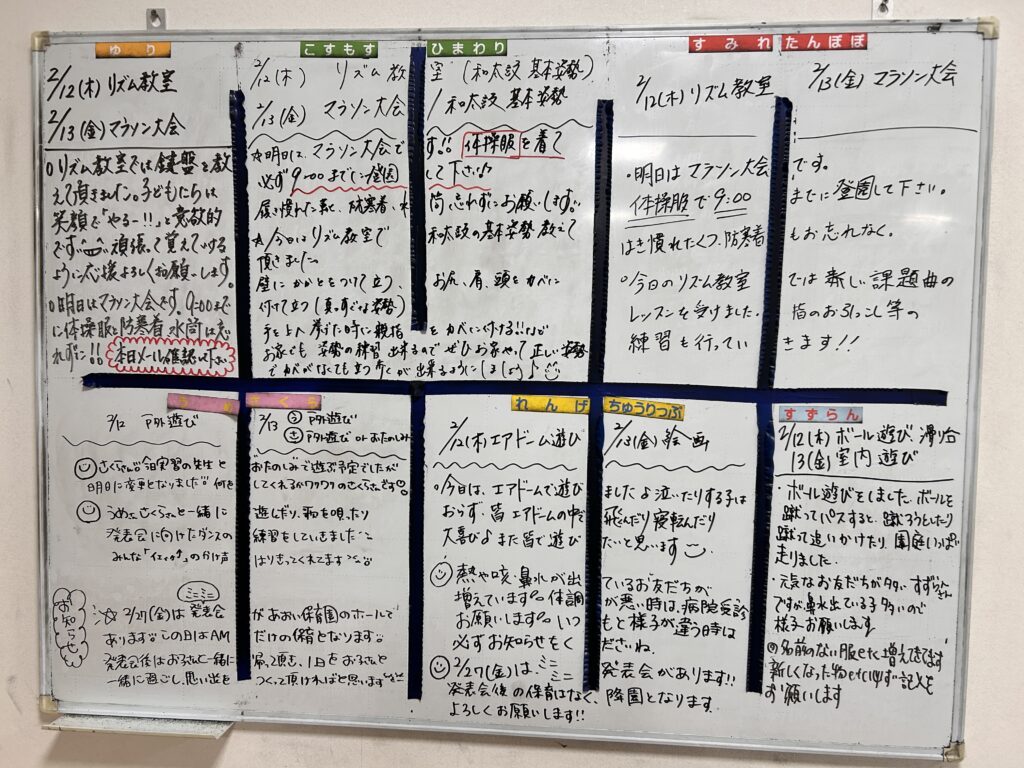 ゆり
2/12(木) リズム教室
2/13(金) マラソン大会
○リズム教室では鍵盤を教
えて頂きました。子どもたちは
笑顔で「やるー!!」と意欲的
です。頑張って覚えていける
ように応援よろしくお願いします。
○明日はマラソン大会です。9:00までに
体操服と防寒着、水筒は忘
れずに!! 本日メール確認して下さい
こすもす ひまわり
2/12(木) リズム教室 (和太鼓 基本姿勢)
2/13(金) マラソン大会 / 和太鼓 基本姿勢
☆明日は、マラソン大会です!! 体操服を着て
必ず9:00までに登園して下さい♪
履き慣れた靴、防寒着、水筒忘れずにお願いします。
☆今日はリズム教室で和太鼓の基本姿勢教えて
頂きました
壁にかかとをつけて立つ、お尻、肩、頭をカベに
付けて立つ(真っすぐな姿勢)
手を上へ挙げた時に親指をカベに付ける!!など
お家でも姿勢の練習出来るのでぜひお家でやって正しい姿勢
でカベがなくても立つ事が出来るようにしましょう♪
すみれ たんぽぽ
2/12(木) リズム教室 2/13(金) マラソン大会
○明日はマラソン大会です。
体操服で9:00までに登園して下さい。
はき慣れたくつ、防寒着もお忘れなく。
○今日のリズム教室では新しい課題曲の
レッスンを受けました。指のお引っこし等の
練習を行っていきます!!
うめ さくら
2/12 戸外遊び 2/13 う 戸外遊び
さ 戸外遊び or おたのしみ
さくらさんは今日実習の先生とおたのしみで遊ぶ予定でしたが
明日に変更となりました 何をしてくれるかワクワクのさくらさんです
うめはさくらさんと一緒に遊んだり、歌を唄ったり
発表会に向けたダンスの練習をしていきました
みんな「イェイ」のかけ声はりきってくれてます
お知らせ
☆2/27(金)はミニミニ発表会があおい保育園のホールで
あります この日はAMだけの保育となります
発表会後はお子さんと一緒に帰って頂き、1日をお子さんと
一緒に過ごし、思い出をつくって頂ければと思います
れんげ ちゅうりっぷ
2/12(木) エアドーム遊び 2/13(金) 絵画
○今日は、エアドームで遊びましたよ 泣いたりする子は
おらず、皆エアドームの中で飛んだり寝転んだり
大喜び♪また皆で遊びたいと思います
熱や咳・鼻水が出ているお友だちが
増えています 体調が悪い時は、病院受診
お願いします いつもと様子が違う時は
必ずお知らせくださいね。
2/27(金)は ミニミニ発表会があります!!
発表会後の保育はなく、降園となります。
よろしくお願いします!!
すずらん
2/12(木) ボール遊び、滑り台
13(金) 室内遊び
・ボール遊びをしました。ボールを
蹴ってパスすると、蹴ろうとしたり
蹴って追いかけたり、園庭いっぱい
走りました。
・元気なお友だちが多い すずらんさん
ですが鼻水出ている子多いので
様子お願いします
◎名前のない服など増えてきてます
新しくなった物などに必ず記名を
お願いします